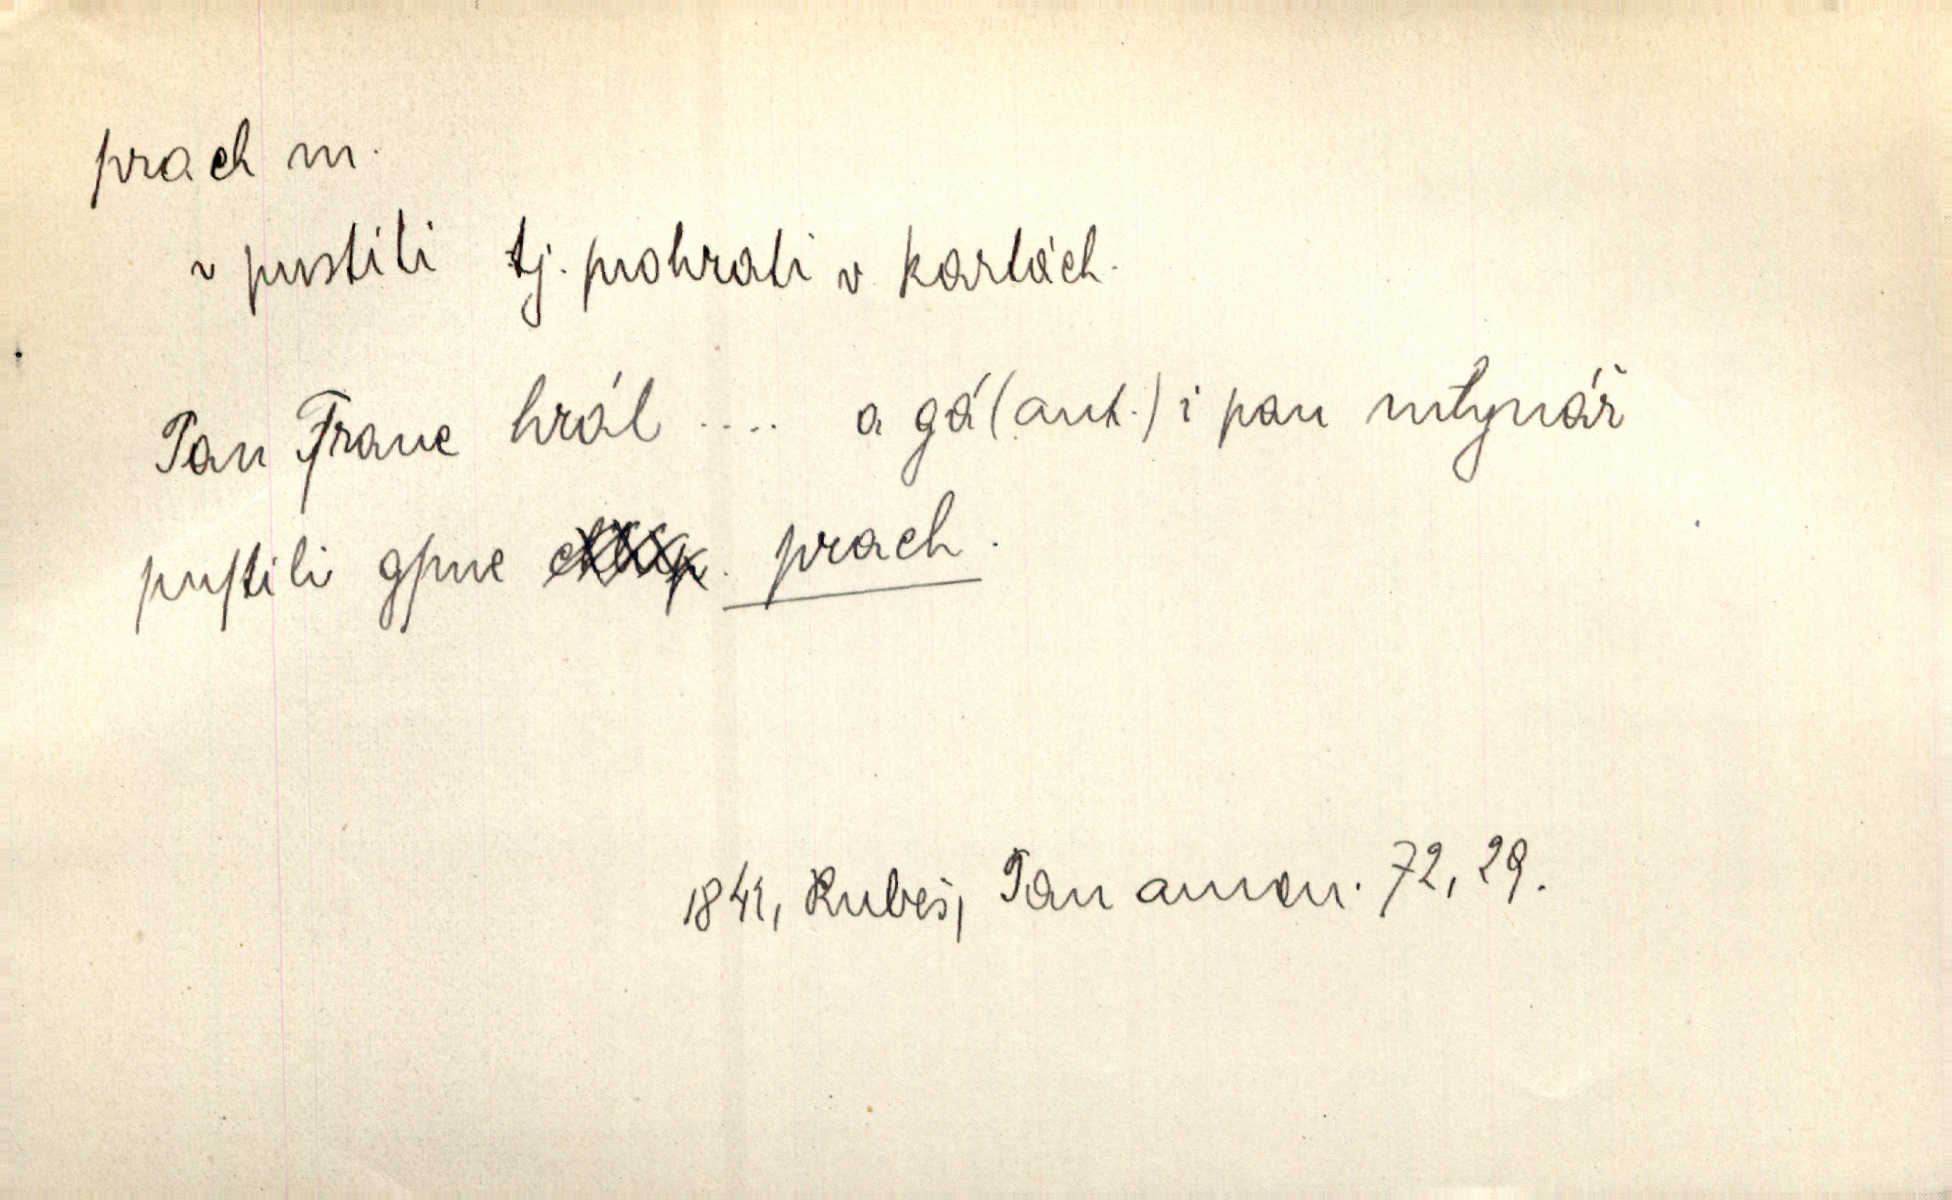 prach m.
~ pustiti tj. prohrati v kartách.
Pan Franc hrál .... a gá (aut.) i pan mlynář
puſtili gſme prach.
1841, Rubeš, Pan aman. 72, 29.